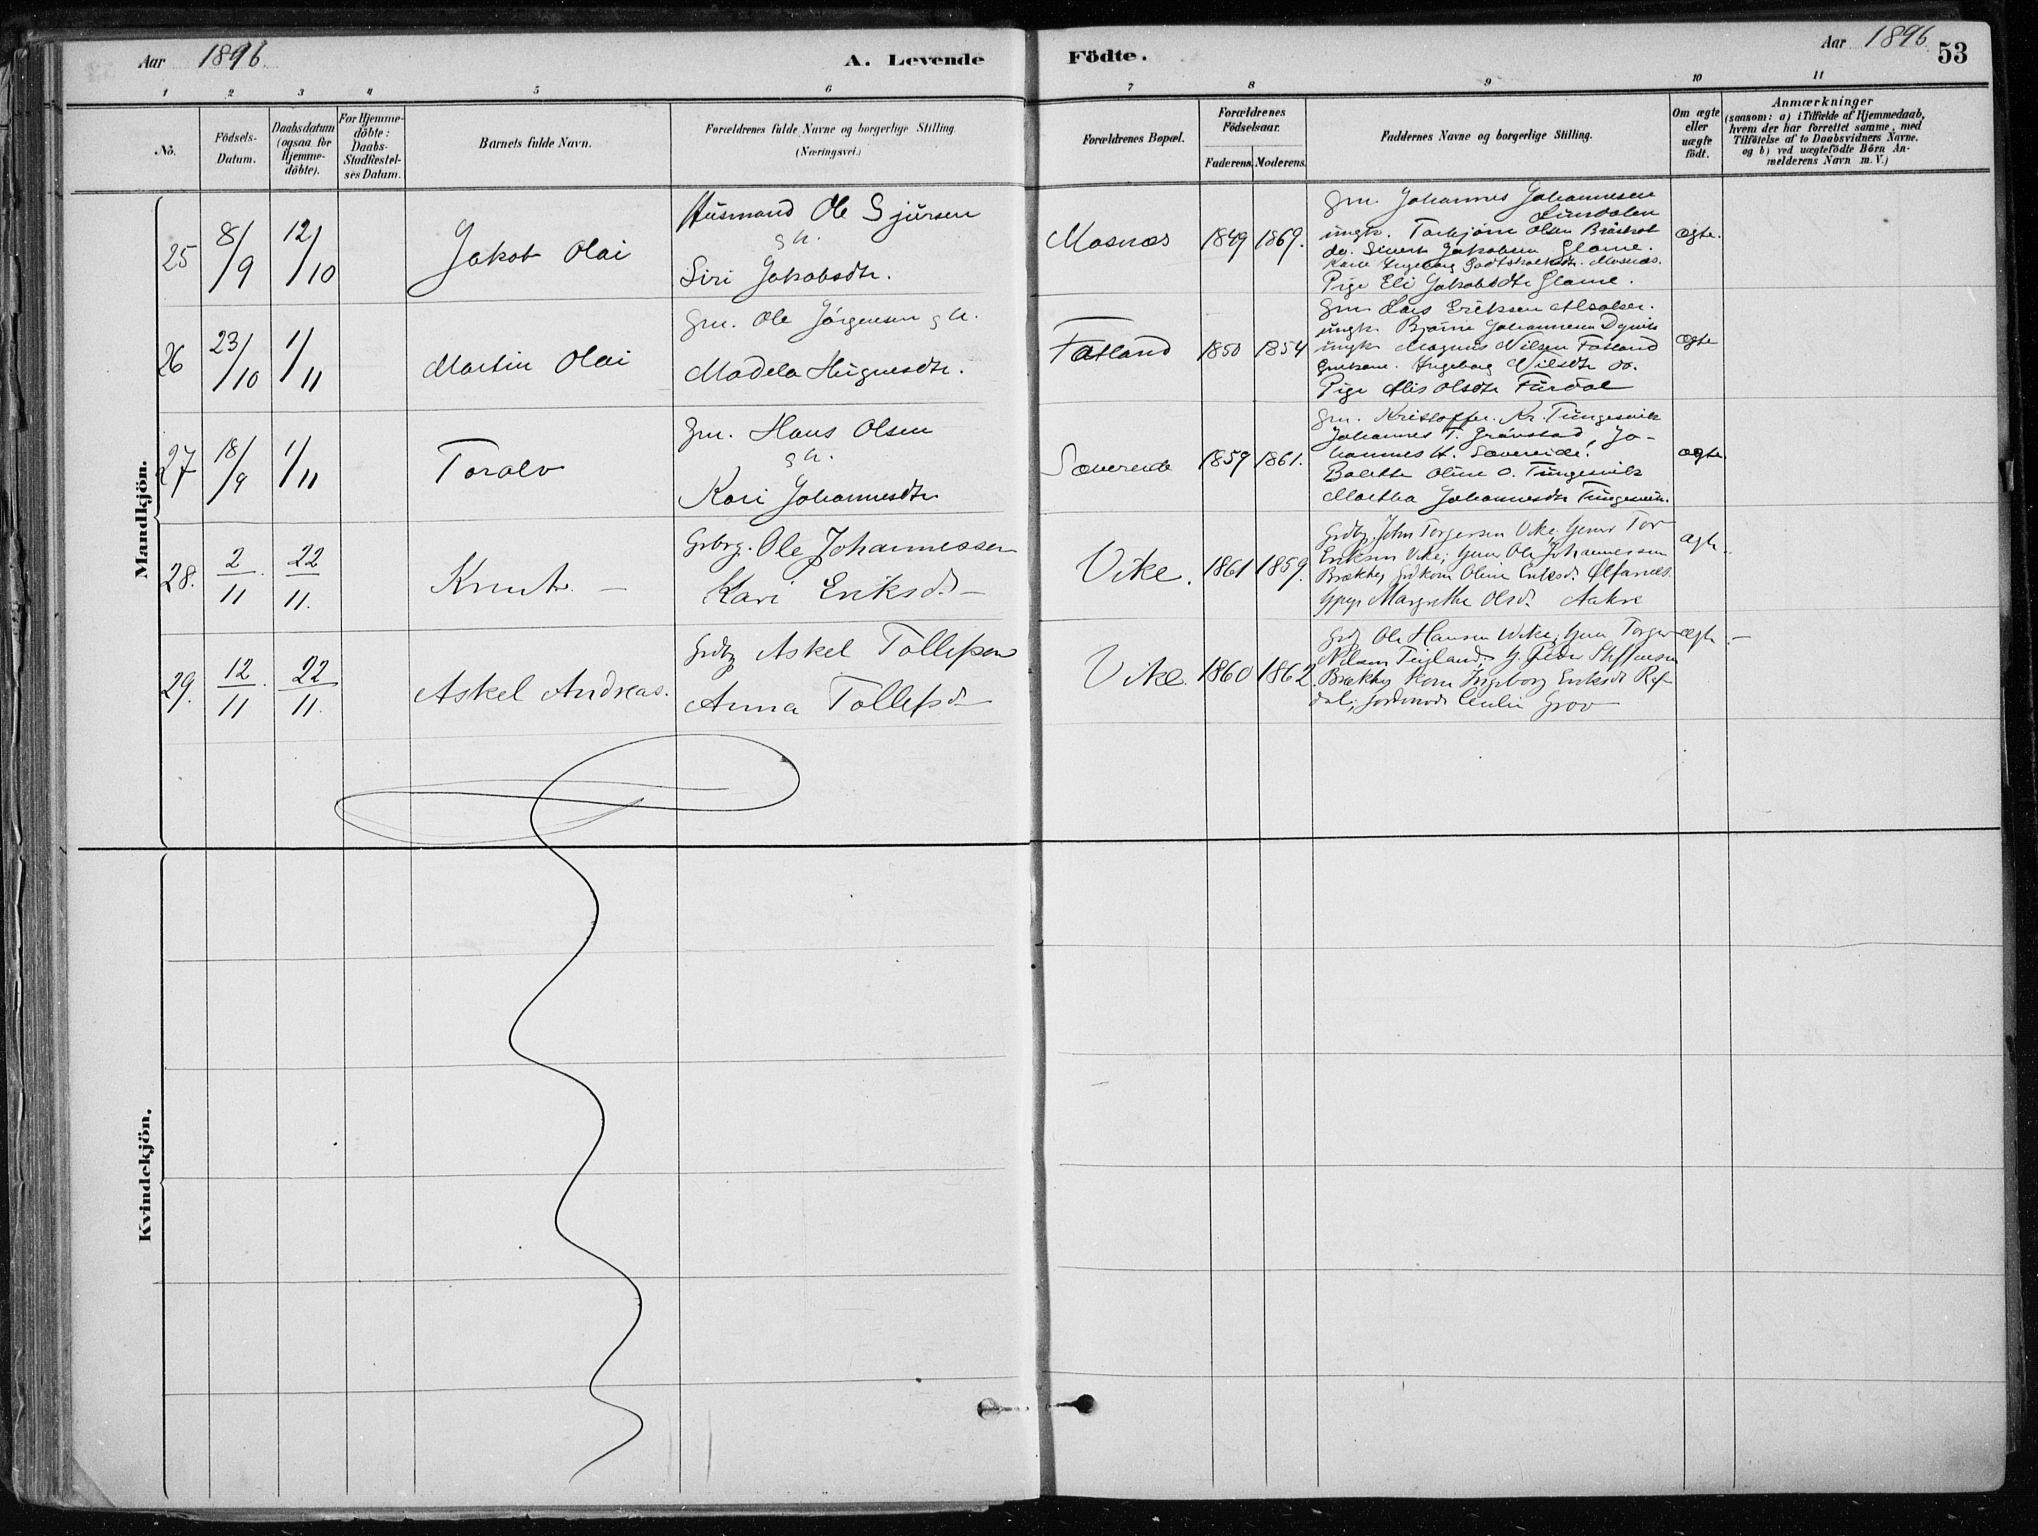 Aar 1896.
A. Levende
Födte.
Aar 1896
53
1 2 3 4 5 6 7 8 9 10 11
Nö.
Födsels-
Datum.
Daabsdatum
(ogsaa for
Hjemme-
döbte).
For Hjemme-
döbte:
Daabs-
Stadfæstel-
ses Datum.
Barnets fulde Navn.
Forældrenes fulde Navne og borgerlige Stilling
(Næringsvei.)
Forældrenes Bopæl.
Forældrenes
Födselsaar.
Faderens. Moderens.
Faddernes Navne og borgerlige Stilling.
Om ægte
eller
uægte
födt.
Anmærkninger
(saasom: a) i Tilfælde af Hjemmedaab,
hvem der har forrettet samme, med
Tilföielse af to Daabsvidners Navne,
og b) ved uægtefödte Börn An-
melderens Navn m. V.)
Mandkjön.
25 8/9 12/10 Jakob Olai
Husmand Ole Sjursen
g h.
Siri Jakobsdtr.
Mosnæs 1849 1869.
Gm. Johannes Johannesen
Lindalen
ungk. Torbjörn Olsen
do. Sivert Jakobsen Glame.
Kone Ingeborg Mosnæs.
Pige Eli Jakobsdtr Glame.
ægte.
26 23/10 1/11 Martin Olai
Gm. Ole Jörgensen g h.
Madela Hugnesdtr.
Fatland 1850 1854
Gm Lars Eriksen
ungk. Bjarne Johannesen
ungk Magnus Nilsen Fatland
Ingeborg Nilsdtr do.
Pige Alis Olsdtr Furdal
ægte
27 18/9 1/11 Toralv
Gm. Hans Olsen
g h.
Kari Johannesdtr
Sævereide 1859 1861.
Gm. Kristoffer Kr. Tungesvik
Johannes T. Grönstad, Jo-
hannes H. Sævereide.
Bolette Oline O. Tungesvik
Martha Johannesdtr Tungesvik.
ægte.
28. 2/11 22/11. Knut. —
Grbrg. Ole Johannessen
Kari Eriksd. —
Vike. 1861 1859.
Grdbr. John Torgersen Vike, Gmr Tor
Eriksen Vike; Gmr Ole Johannessen
Brække, Grdkone Oline Eriksd. Ølfarnes.
Margrethe Olsd. Aakre
ægte.
29. 12/11 22/11. Askel Andreas.
Grdbr Askel Tollefsen
Anna Tollefsd.
Vike. 1860 1862.
Grdb Ole Hansen Vike; Gmr Torger
Nilsen Teigland, G. Peder Steffensen
Brække, Kone Ingeborg Eriksd. Ref
dal; Jordmod. Cecilie Grov
ægte —
Kvindekjön.